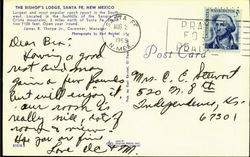 THE BISHOP'S LODGE, SANTA FE, NEW MEXICO
Largest and most popular ranch resort in the South-
west. Located in the foothills of the Sangre de
Cristo Mountains, 3 miles north of Santa Fe. Elevation
7200 feet. Open year round.
James R. Thorpe Jr., Owner Manager
SANTA FE
N. MEX
PRAY
FOR
Post Card
Dear Bea:
Having a good
rest and may
gain a few pounds
but will enjoy it,
our room is
really nice, lots of
room & view
Hope you are fine
Love
Mrs. C. C. Stewart
520 N. 8th
Independence, Ks
67301